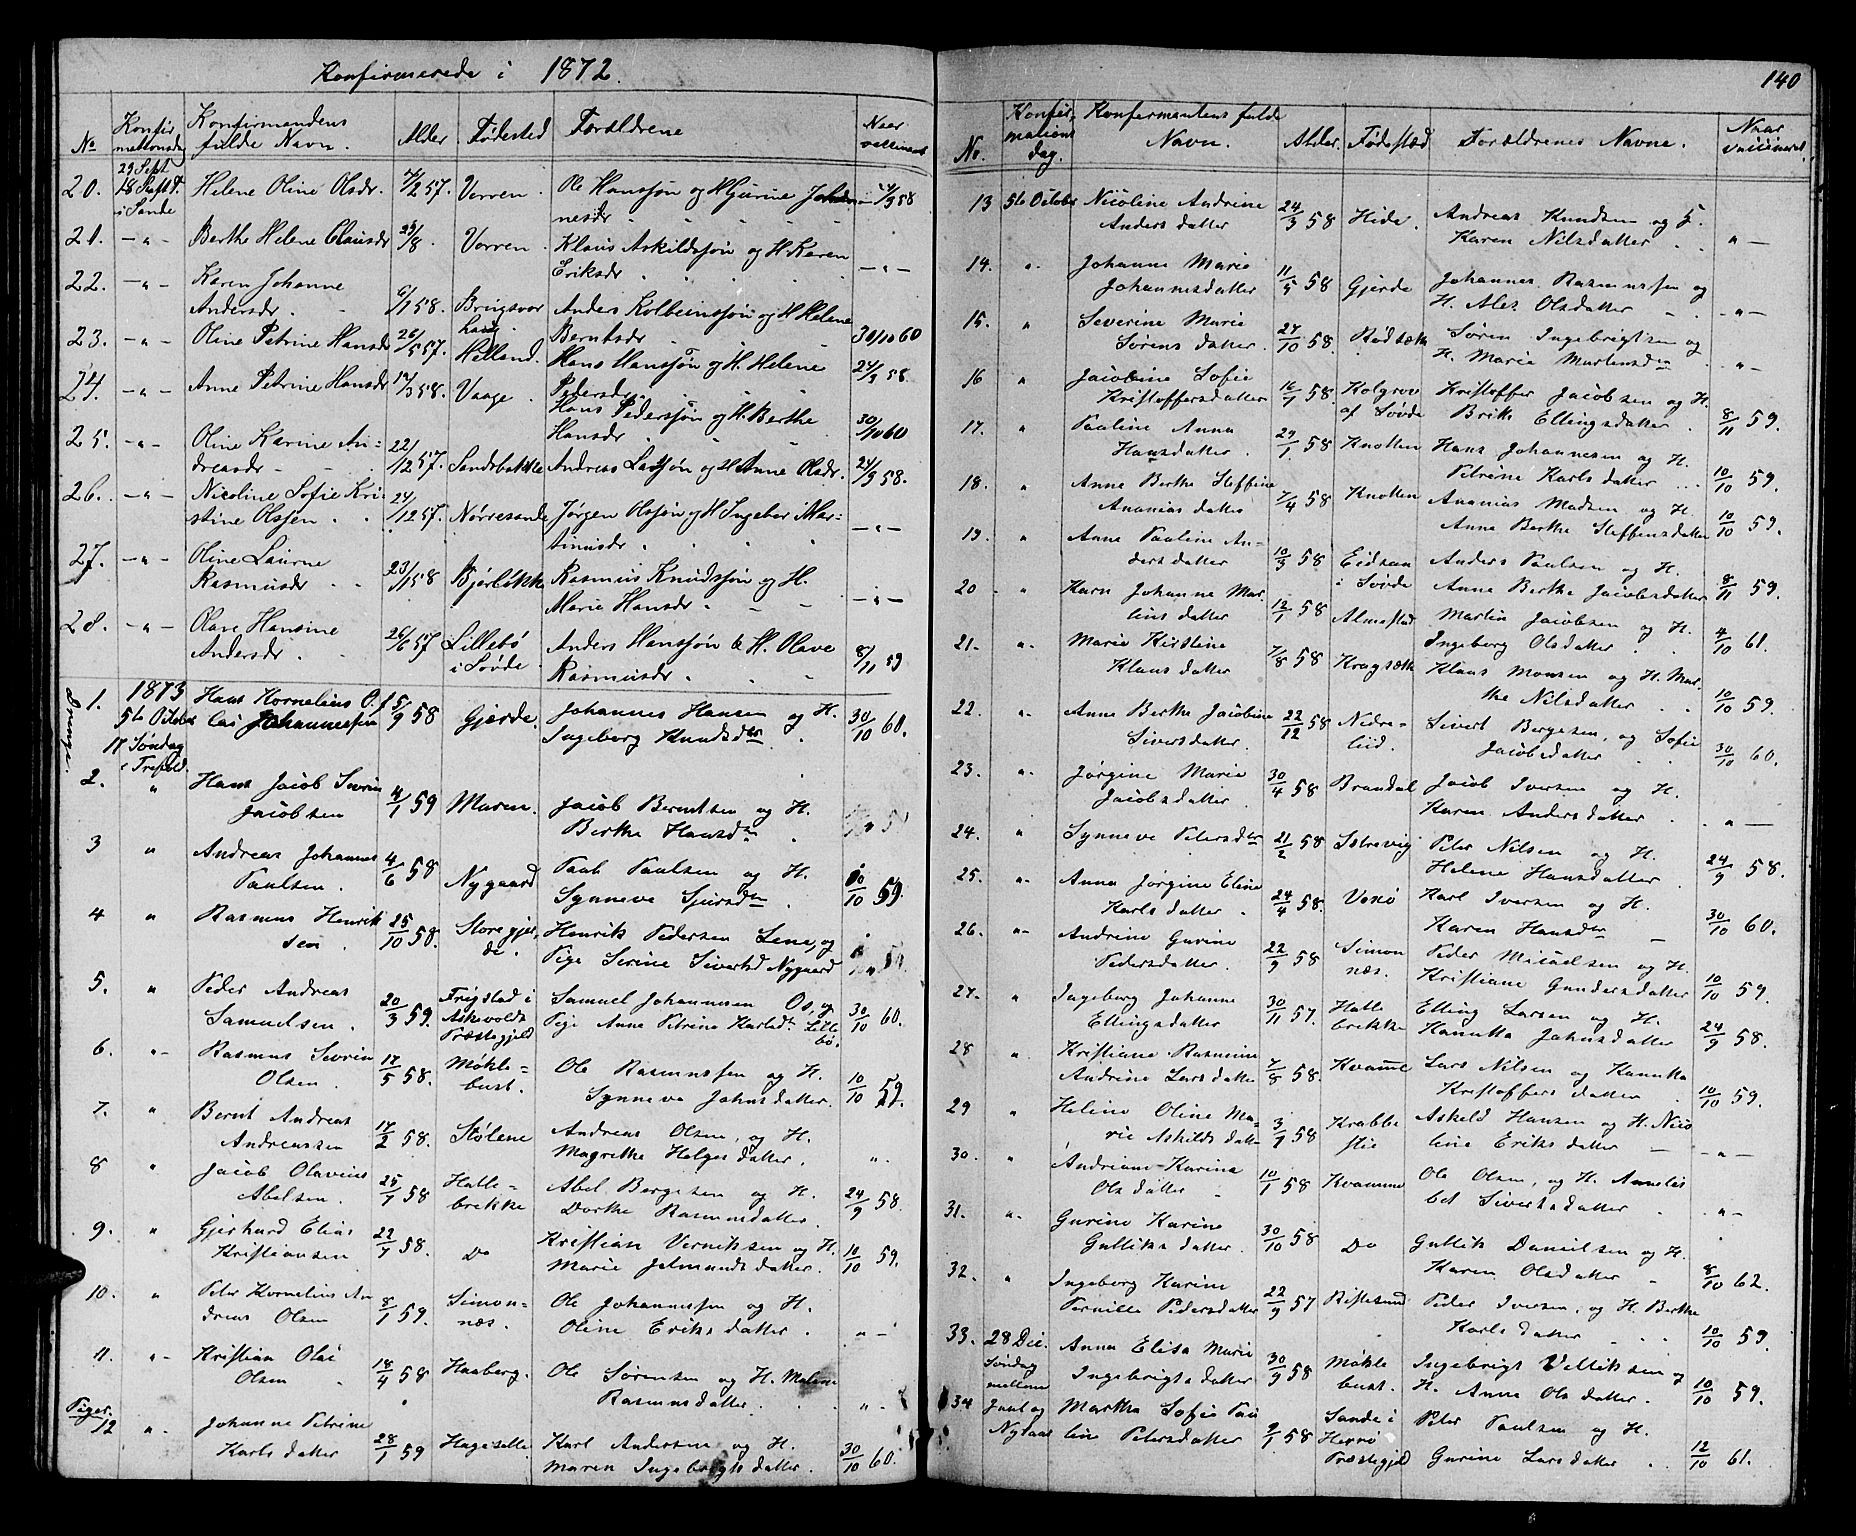 Konfirmerede i 1872.
No
Konfirmationsdag
Konfirmandens fulde Navn.
Alder
Fødested
Forældrene
Naar vaccineret
20. 29 Sept. 18 S. eft. T. i Sande Helene Oline Olsdr. 7/2 57. Vorren. Ole Hanssøn og H Gjurine Johannesdr 24/9 58
21. -"- Berthe Helene Clausdr 23/8. Vorren. Klaus Askildssøn og H Karen Eriksdr -"-
22. -"- Karen Johanne Andersdr. 6/1 58. Bringsvor Anders Kolbeinssøn og H Helene Berntsdr 30/10 60
23. -"- Oline Petrine Hansdr 26/5 57. Helland. Hans Hanssøn og H. Helene Pedersdr. 24/9 58.
24. -"- Anne Petrine Hansdr 14/3 58. Vaage. Hans Pederssøn og H. Berthe Hansdr 30/10 60
25. -"- Oline Karine Andreasdr 22/12 57. Sandsbakke Andreas Lassøn og H Anne Olsdr. 24/9 58.
26. -"- Nicoline Sofie Kristine Olssen 24/12 57. Nørresande Jørgen Olssøn og H Ingebor Martinusdr -"-
27. -"- Oline Laurine Rasmusdr 23/1 58 Bjørlikke Rasmus Knudssøn og H. Marie Hansdr -"-
28. -"- Olave Hansine Andersdr. 26/6 57 Lillebø i Søvde. Anders Hanssøn & H. Olave Rasmusdr. 8/11 59
Drenge.
1. 1873 5te Octobr 17 Søndag e Trefold. Hans Kornelius Olai Johannessen 15/9 58 Gjerde. Johannes Hansen og H. Ingeborg Knudsdtr 30/10 60.
2. " Hans Jacob Sivrin Jacobsen 4/1 59 Maren. Jacob Berntsen og H. Berthe Hansdtr
3 " Andreas Johannes Paulsen. 4/6 58 Nygaard Paul Paulsen og H. Synneve Sjursdtr 10/10 59.
4 " Rasmus Henriksen. 25/10 58. Storegjerde. Henrik Pedersen Lene, og Pige Serine Sivertsd Nygaard
5. " Peder Andreas Samuelsen. 20/3 59. Frigstad i Askevolds Præstegjeld Samuel Johannesen Os, og Pige Anne Petrine Karlsdt. Lillebø. 30/10 60.
6. "- Rasmus Sevrin Olsen 17/5 58. Møklebust. Ole Rasmussen og H. Synneve Johnsdatter. 10/10 59.
7. " Bernt Andreas Andreassen 17/2 58. Stølene Andreas Olsen, og H. Magrethe Helgesdatter. "-
8 " Jacob Olavius Abelsen. 25/7 58 Hallebrekke Abel Bergesen og H. Dorthe Rasmusdatter. 24/9 58.
9. " Gjerhard Elias Kristiansen 22/7 58. Do Kristian Verniksen og H. Marie Jetmundsdatter. 10/10 59.
10. " Peter Kornelius Andreas Olsen 8/1 59. Simonnæs. Ole Johannessen og H. Oline Eriksdatter. "-
11. "- Kristian Olai Olsen 18/4 58 Haaberg. Ole Sørensen og H. Malene Rasmusdatter. "-
Piger.
12 ". Johanne Petrine Karlsdatter 28/1 59 Hageselle Karl Andersen og H. Maren Ingebrigtsdatter. 30/10 60.
140
No.
Konfirmations dag.
Konfirmantens fulde Navn.
Alder.
Fødestæd
Forældrenes Navne.
Naar vaccineret.
13 5te Octobr Nicoline Andrine Andersdatter 24/3 58 Hide. Andreas Knudsen og H. Karen Nilsdatter "-
14. ". Johanne Marie Johannesdatter 11/5 58 Gjerde Johannes Rasmussen og H. Alez Olsdatter -"-
15. " Severine Marie Sørensdatter. 27/10 58. Rødsæth Søren Ingebrigtsen og H. Marie Martinsdtr -"-
16 " Jacobine Sofie Kristoffersdatter 16/7 58 Kolgrov af Søvde Kristoffer Jacobsen og H. Brite Ellingsdatter. 8/11 59.
17. " Pauline Anna Hansdatter. 29/1 58 Knotten Hans Johannesen og H. Petrine Karlsdatter 10/10 59.
18. " Anne Berthe Steffine Ananiasdatter 7/4 58 Knotten Ananias Madsen og H. Anne Berthe Steffensdatter 10/10 59.
19. " Anne Pauline Andersdatter 10/3 58 Eidsaa i Søvde Anders Paulsen og H. Anne Berthe Jacobsdatter 8/11 59.
20 " Karn Johanne Martinsdatter 12/1 58 Almestad Martin Jacobsen og H. Ingeborg Olsdatter 4/10 61.
21. " Marie Kristine Klausdatter 7/8 58 Kragsæth Klaus Monsen og H. Marthe Nilsdatter 10/10 59.
22. " Anne Berthe Jacobine Siversdatter. 22/12 58 Nedrelid. Sivert Bergesen, og Sofie Jacobsdatter 30/10 60.
23. ". Jørgine Marie Jacobsdatter. 30/4 58 Brandal Jacob Iversen og H. Karen Andersdatter "-
24. " Synneve Petersdtr 21/2 58 Istrevig Peter Nilsen og H. Helene Hansdatter 24/9 58.
25. ". Anna Jørgine Eline Karlsdatter 24/4 58. Voxø Karl Iversen og H. Karen Hansdtr 30/10 60.
26. "- Andrine Gurine Pedersdatter. 22/9 58 Simonnæs. Peder Micaelsen og H. Kristiane Gundersdatter 10/10 59.
27. " Ingeborg Johanne Ellingsdatter 30/11 57. Hallebrekke Elling Larsen og H. Hanikka Johnsdatter 24/9 58.
28 ". Kristiane Rasmine Andrine Larsdatter 7/8 58. Kvamme Lars Nilsen og Hanikka Kristoffersdatter 10/10 59.
29 " Heline Oline Marie Askildsdatter 3/7 58 Krabbestie Askeld Hansen og H. Nicoline Eriksdatter -"-
30. " Andriane Karina Olsdatter 10/1 58 Kvamme Ole Olsen, og H. Annelisbet Sivertsdatter -"-
31. ". Gurine Karine Gulliksdatter. 30/10 58 Do Gullik Danielsen og H. Karen Olsdatter 8/10 62.
32. " Ingeborg Karine Pernille Pedersdatter 22/9 57 Riste Peder Iversen, og H. Berthe Karlsdatter 10/10 59.
33. 28 Dec. Søndag mellem Anna Elisa Marie Ingebrigtsdatter 30/9 58 Møklebust. Ingebrigt Velliksen og H. Anne Olsdatter. 10/10 59.
34 Juul og Nytaar Martha Sofie Pauline Petersdatter 9/1 58 Sande i Herrø Præstegjeld Peter Paulsen og H. Gurine Larsdatter 12/10 61.